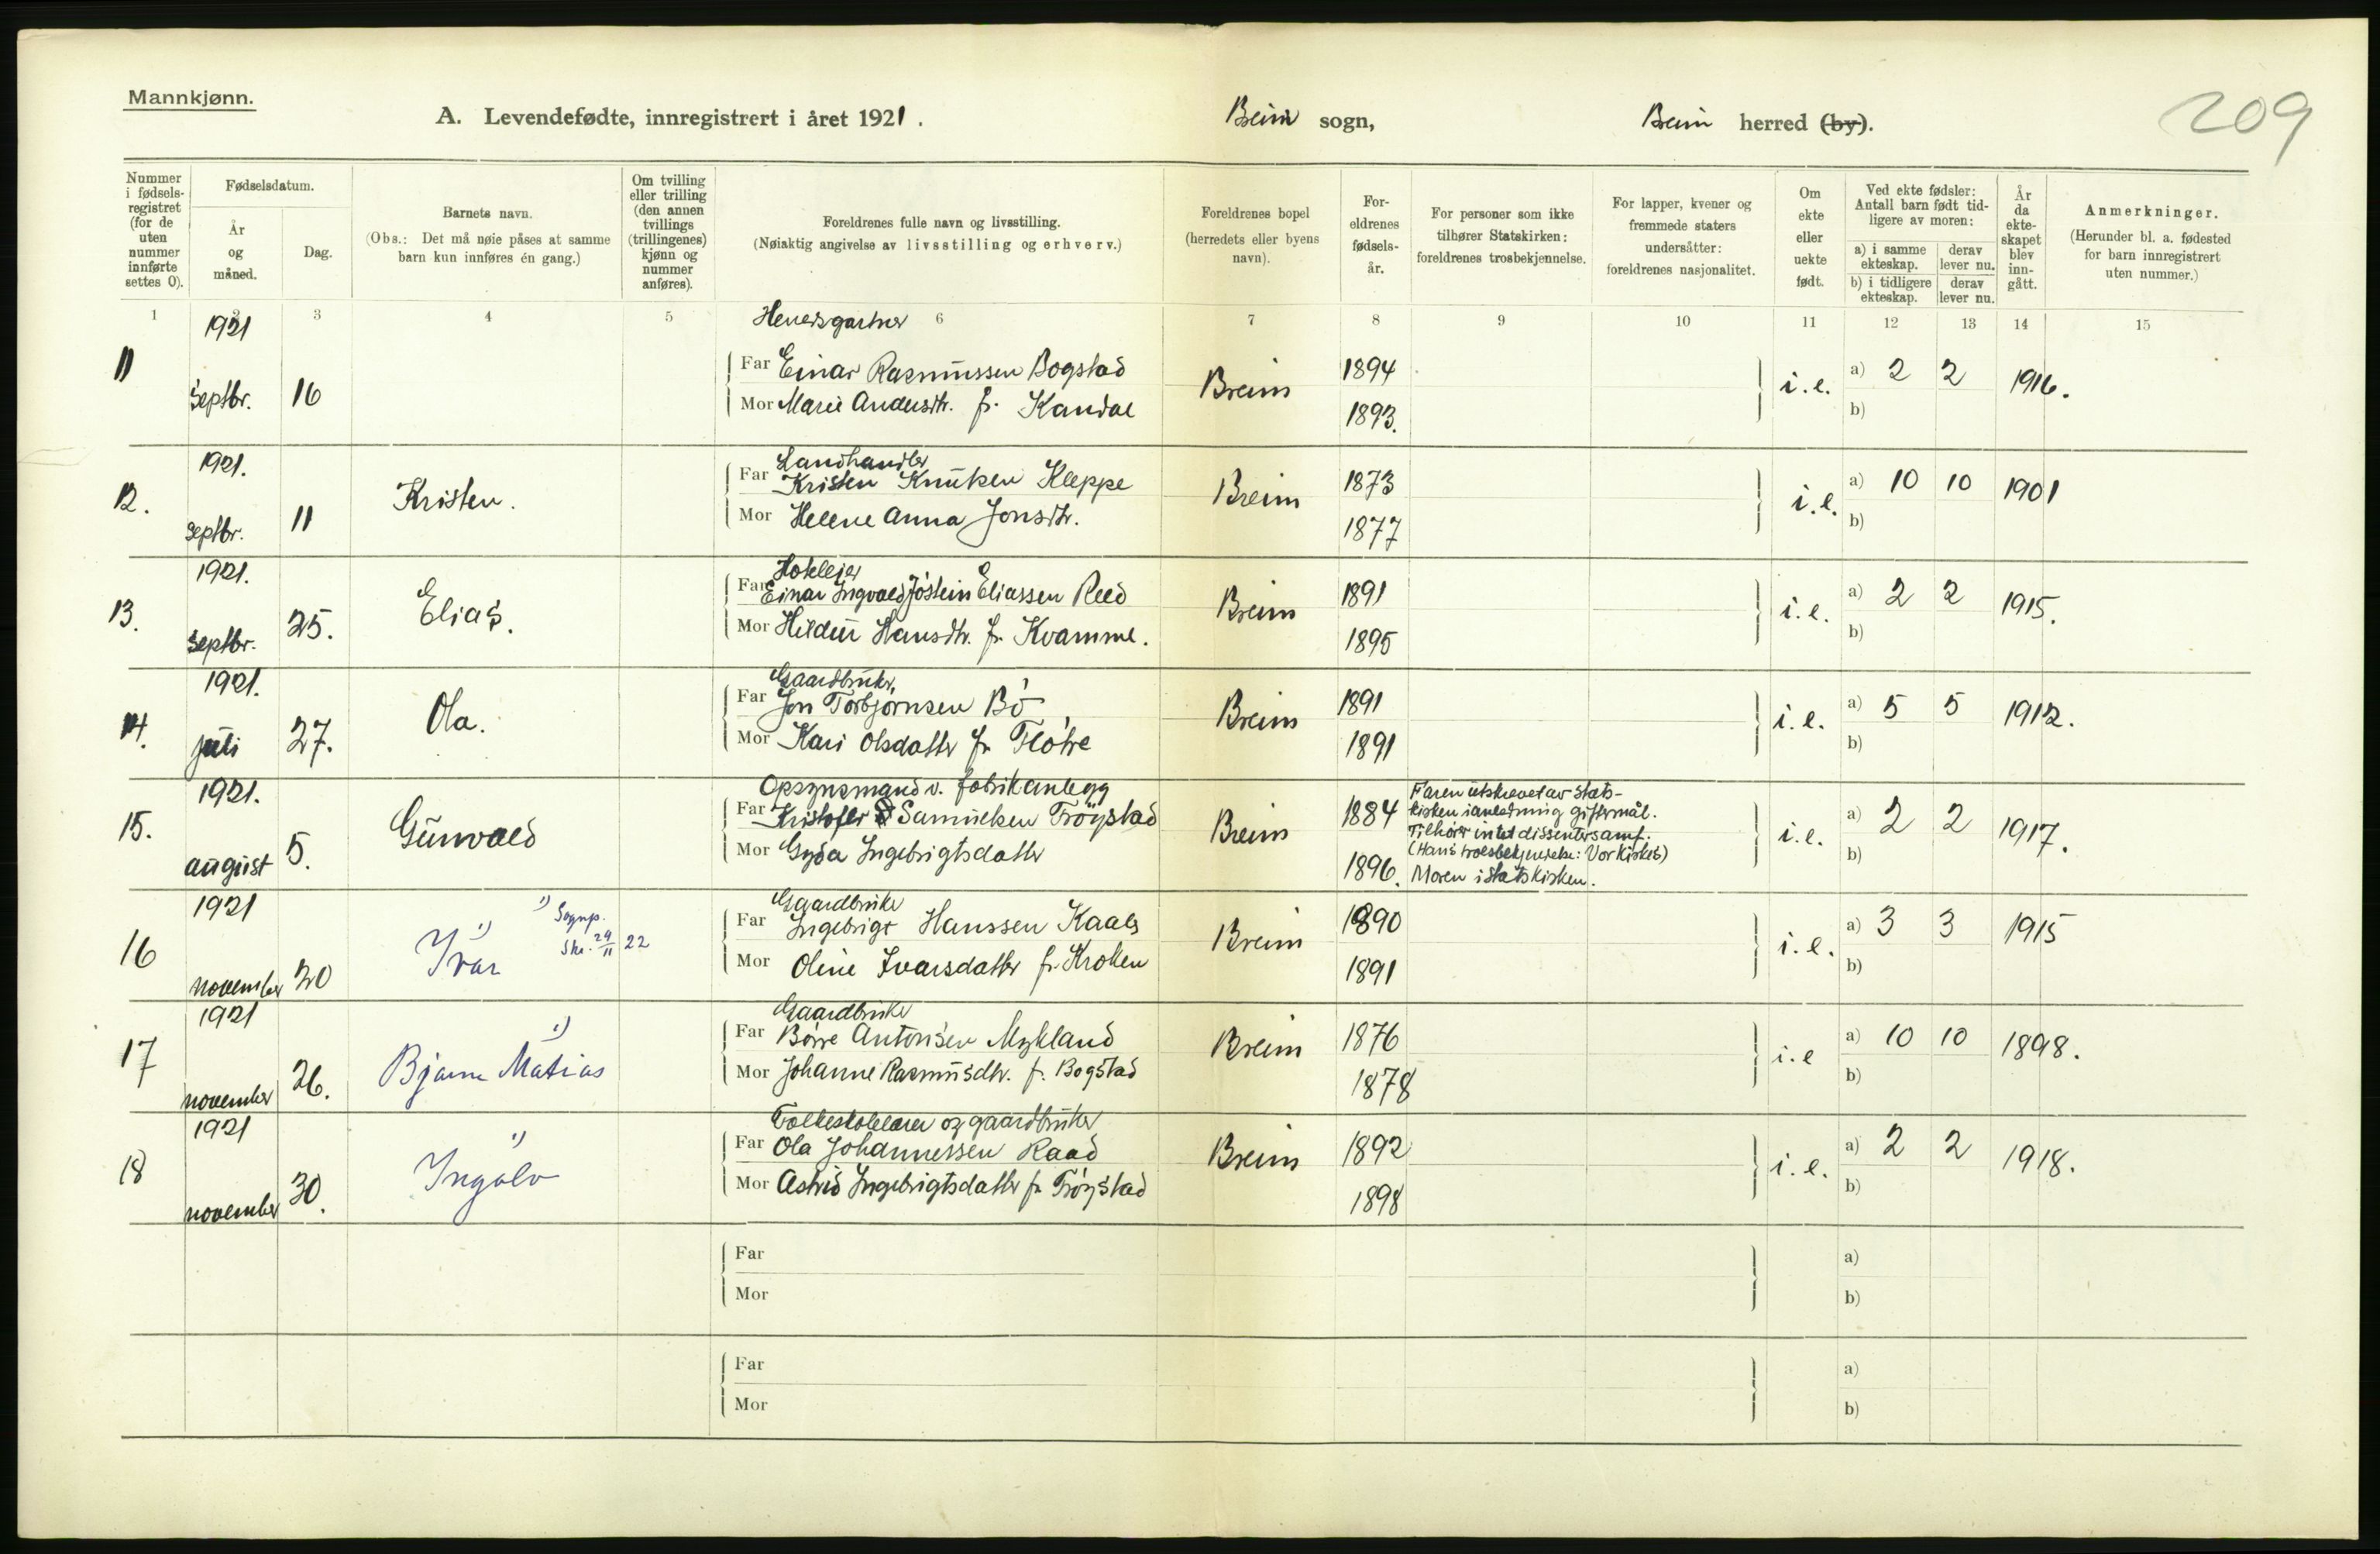 Mannkjønn.
A. Levendefødte, innregistrert i året 1921.
Breim sogn,
Breim herred (by).
209
Nummer i fødsels-registret (for de uten nummer innførte settes 0).
Fødselsdatum.
År og måned.
Dag.
Barnets navn.
(Obs.: Det må nøie påses at samme barn kun innføres én gang.)
Om tvilling eller trilling (den annen tvillings (trillingenes) kjønn og nummer anføres).
Foreldrenes fulle navn og livsstilling.
(Nøiaktig angivelse av livsstilling og erhverv.)
Foreldrenes bopel (herredets eller byens navn).
For-eldrenes fødsels-år.
For personer som ikke tilhører Statskirken: foreldrenes trosbekjennelse.
For lapper, kvener og fremmede staters undersåtter: foreldrenes nasjonalitet.
Om ekte eller uekte født.
Ved ekte fødsler: Antall barn født tid-ligere av moren:
a) i samme ekteskap.
derav lever nu.
b) i tidligere ekteskap.
derav lever nu.
År da ekte-skapet blev inn-gått.
Anmerkninger.
(Herunder bl. a. fødested for barn innregistrert uten nummer.)
1 3 4 5 6 7 8 9 10 11 12 13 14 15
1921
11 Septbr. 16
Far Einar Rasmussen Bogstad
Mor Marie Andersdtr. fr. Kandal
Breim 1894 1893. i.e. a) 2 2 b) 1916.
1921.
12. Septbr. 11 Kristen.
Landhandler
Far Kristen Knutsen Kleppe
Mor Helene Anna Jonsdtr.
Breim 1873 1877 i.e. a) 10 10 b) 1901
1921.
13. Septbr. 25. Elias.
Hoteleier
Far Einar Ingvald Jóstein Eliassen Reed
Mor Hildur Hansdtr. fr. Kvamme.
Breim 1891 1895 i.e. a) 2 2 b) 1915.
1921.
14. juli 27. Ola.
Gaardbruker,
Far Jon Torbjørnsen Bó
Mor Kari Olsdatter fr. Flótre
Breim 1891 1891 i.e. a) 5 5 b) 1912.
1921.
15. august 5. Gunvald
Opsynsmand v. fabrikanlegg
Far Kristofer Samuelsen Tröystad
Mor Gyda Ingebrigtsdatter
Breim 1884 1896.
Faren utskrevet av stats-
kirken i anledning giftermål.
Tilhører intet dissentersamf.
(Hans troesbekjennelse: Vor kirkes)
Moren i statskirken.
i.e. a) 2 2 b) 1917.
1921
16 november 20 Ivar 1)
1) Sognp.
Skr. 29/11 22
Gaardbruker
Far Ingebrigt Hanssen Kaals
Mor Oline Ivarsdatter fr. Kroken
Breim 1890 1891 i.e. a) 3 3 b) 1915
1921
17 november 26. Bjarne Matias 1)
Gaardbruker
Far Børre Antonsen Mykland
Mor Johanne Rasmusdtr. f. Bogstad
Breim 1876 1878 i.e a) 10 10 b) 1898.
1921
18 november 30. Ingolv 1)
Folkeskolelærer og gaardbruker
Far Ola Johannessen Raad
Mor Astrid Ingebrigtsdatter fr. Tróystad
Breim 1892 1898 i.e. a) 2 2 b) 1918.
Far
Mor
a)
b)
Far
Mor
a)
b)